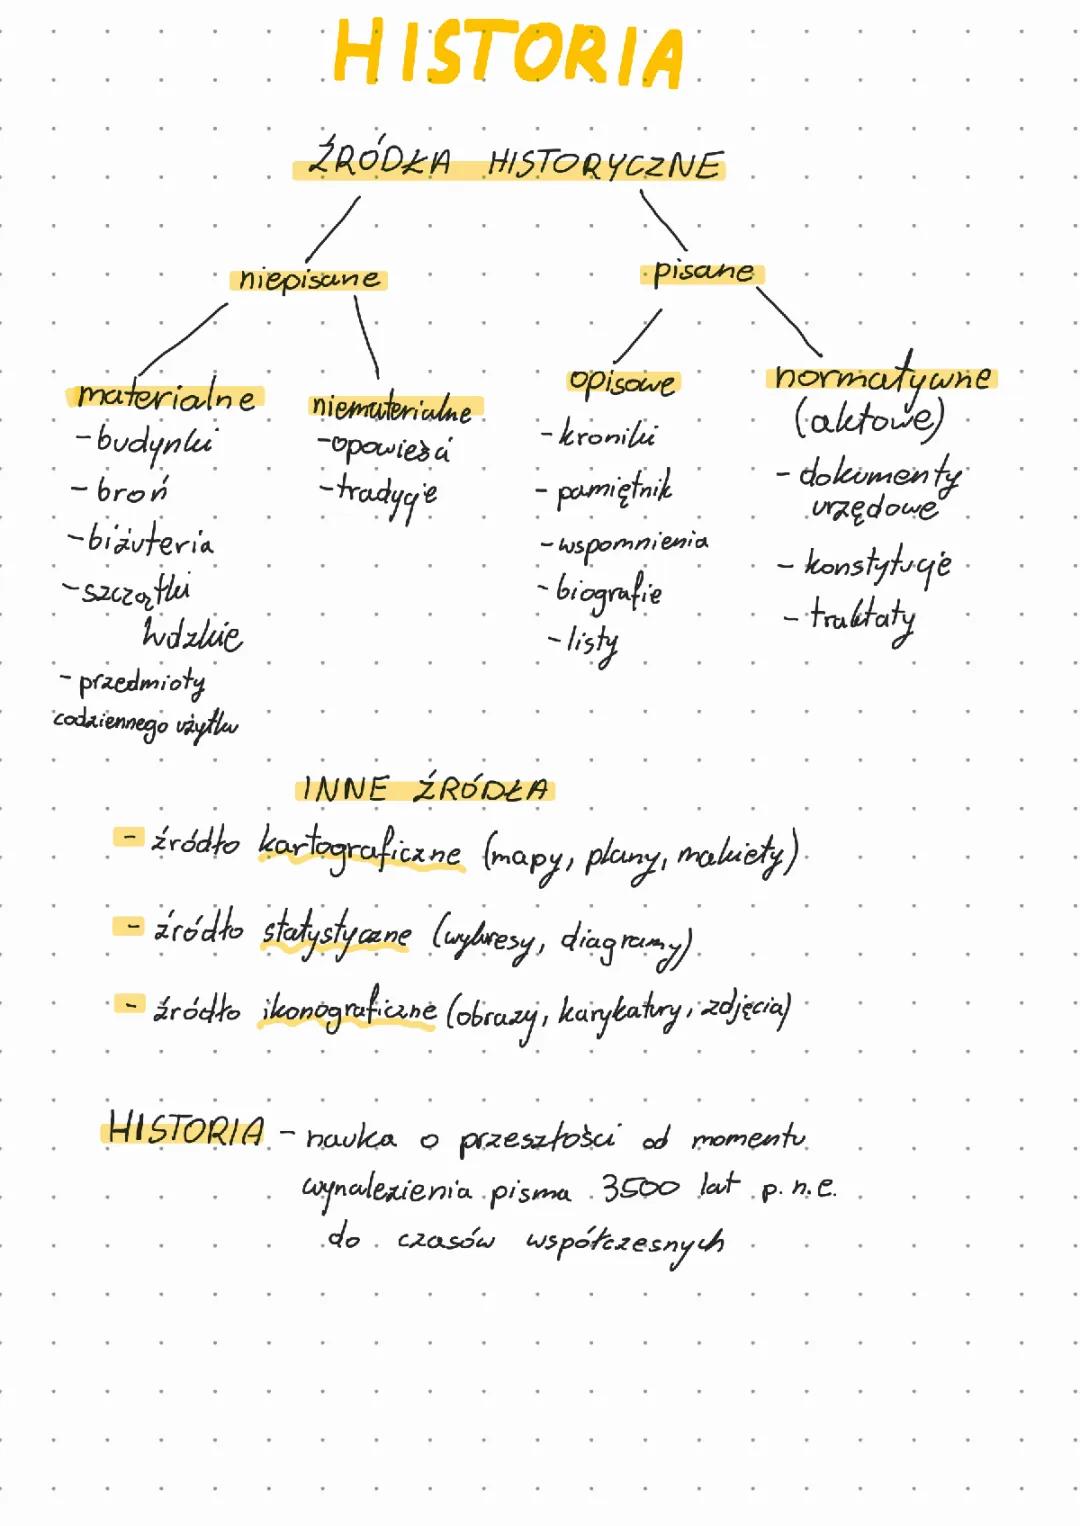 HISTORIA
ŹRÓDŁA HISTORYCZNE
niepisane
pisane
materialne
- budynki
- broń
- biżuteria
- szczątki
ludzkie
- przedmioty
codziennego użytku
niematerialne
- opowieści
- tradycje
opisowe
- kroniki
- pamiętnik
- wspomnienia
- biografie
- listy
normatywne
(aktowe)
- dokumenty
urzędowe
- konstytucje
- traktaty
INNE ŹRÓDŁA
- źródło kartograficzne (mapy, plany, makiety)
- źródło statystyczne (wykresy, diagramy)
- źródło ikonograficzne (obrazy, karykatury, zdjęcia)
HISTORIA - nauka o przeszłości od momentu
wynalezienia pisma 3500 lat p. n. e.
do czasów współczesnych